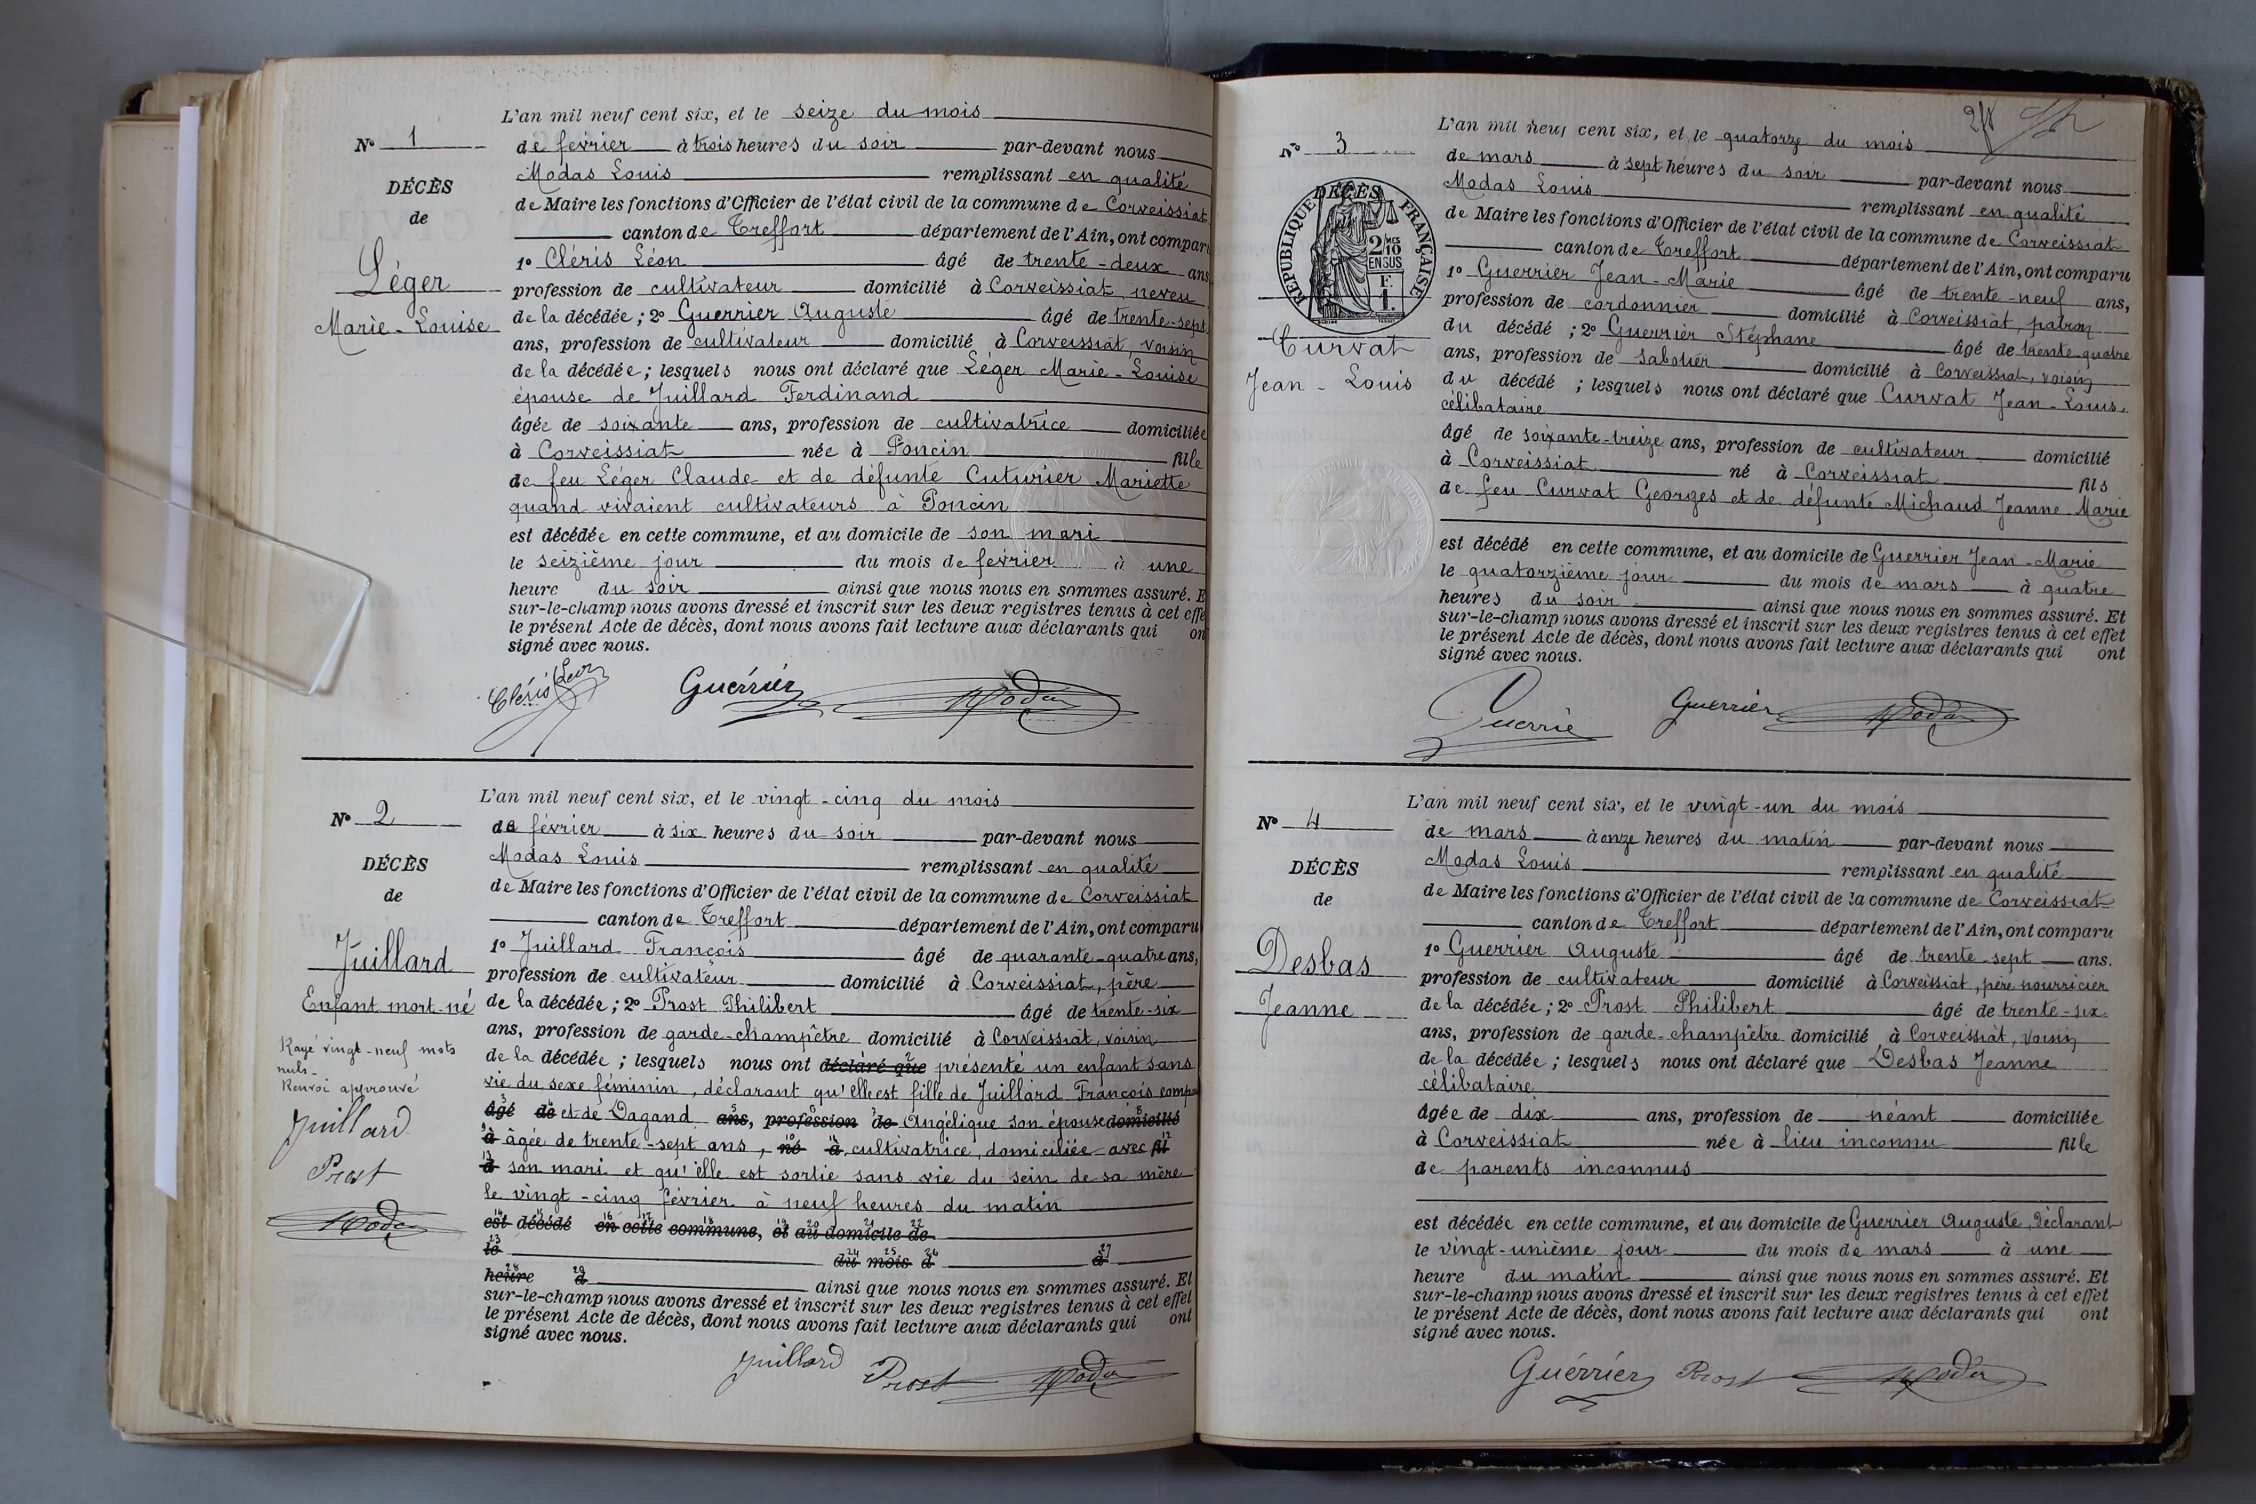 L'an mil neuf cent six, et le seize du mois
N° 1
de février à trois heures du soir par-devant nous
Modas Louis remplissant en qualité
DÉCÈS
de Maire les fonctions d'Officier de l'état civil de la commune de Corveissiat
de
canton de Treffort département de l'Ain, ont comparu
1° Cléris Léon âgé de trente-deux ans
Léger
profession de cultivateur domicilié à Corveissiat, neveu
Marie-Louise
de la décédée ; 2° Guerrier Auguste âgé de trente-sept
ans, profession de cultivateur domicilié à Corveissiat, voisin
de la décédée ; lesquels nous ont déclaré que Léger Marie-Louise
épouse de Juillard Ferdinand
âgée de soixante ans, profession de cultivatrice domiciliée
à Corveissiat née à Poncin fille
de feu Léger Claude et de défunte Cuturier Mariette
quand vivaient cultivateurs à Poncin
est décédée en cette commune, et au domicile de son mari
le seizième jour du mois de février à une
heure du soir ainsi que nous nous en sommes assuré. E
sur-le-champ nous avons dressé et inscrit sur les deux registres tenus à cet effe
le présent Acte de décès, dont nous avons fait lecture aux déclarants qui on
signé avec nous.
Cléris Léon Guérrier Modas
L'an mil neuf cent six, et le vingt-cinq du mois
N° 2
de février à six heures du soir par-devant nous
Modas Louis remplissant en qualité
DÉCÈS
de Maire les fonctions d'Officier de l'état civil de la commune de Corveissiat
de
canton de Treffort département de l'Ain, ont comparu
Juillard
1° Juillard François âgé de quarante-quatre ans,
profession de cultivateur domicilié à Corveissiat, père
Enfant mort-né
de la décédée ; 2° Prost Philibert âgé de trente-six
ans, profession de garde-champêtre domicilié à Corveissiat, voisin
Rayé vingt-neuf mots
nuls-
Renvoi approuvé
Juillard
Prost
Modas
de la décédée ; lesquels nous ont déclaré que présenté un enfant sans
vie du sexe féminin, déclarant qu'elle est fille de Juillard François comp
âgé de et de Dagand ans, profession de Angélique son épouse domicilié
à âgée de trente-sept ans, né à, cultivatrice, domiciliée avec fil
d son mari et qu'elle est sortie sans vie du sein de sa mère
le vingt-cinq février à neuf heures du matin
est décédé en cette commune, et au domicile de
le du mois d à
heure d ainsi que nous nous en sommes assuré. Et
sur-le-champ nous avons dressé et inscrit sur les deux registres tenus à cet effet
le présent Acte de décès, dont nous avons fait lecture aux déclarants qui ont
signé avec nous.
Juillard Prost Modas
L'an mil neuf cent six, et le quatorze du mois
N° 3
de mars à sept heures du soir par-devant nous
Modas Louis remplissant en qualité
DÉCÈS
RÉPUBLIQUE FRANÇAISE
2/10 EN SUS
F. 1.
de Maire les fonctions d'Officier de l'état civil de la commune de Corveissiat
canton de Treffort département de l'Ain, ont comparu
1° Guerrier Jean-Marie âgé de trente-neuf ans,
profession de cordonnier domicilié à Corveissiat, patron
Curvat
Jean-Louis
du décédé ; 2° Guerrier Stéphane âgé de trente-quatre
ans, profession de sabotier domicilié à Corveissiat, voisin
du décédé ; lesquels nous ont déclaré que Curvat Jean-Louis.
célibataire
âgé de soixante-treize ans, profession de cultivateur domicilié
à Corveissiat né à Corveissiat fils
de feu Curvat Georges et de défunte Michaud Jeanne Marie
est décédé en cette commune, et au domicile de Guerrier Jean-Marie
le quatorzième jour du mois de mars à quatre
heures du soir ainsi que nous nous en sommes assuré. Et
sur-le-champ nous avons dressé et inscrit sur les deux registres tenus à cet effet
le présent Acte de décès, dont nous avons fait lecture aux déclarants qui ont
signé avec nous.
Guerrié Guerrier Modas
L'an mil neuf cent six, et le vingt-un du mois
N° 4
de mars à onze heures du matin par-devant nous
Modas Louis remplissant en qualité
DÉCÈS
de Maire les fonctions d'Officier de l'état civil de la commune de Corveissiat
de
canton de Treffort département de l'Ain, ont comparu
Desbas
1° Guerrier Auguste âgé de trente-sept ans.
profession de cultivateur domicilié à Corveissiat, père nourricier
Jeanne
de la décédée ; 2° Prost Philibert âgé de trente-six
ans, profession de garde-champêtre domicilié à Corveissiat, voisin
de la décédée ; lesquels nous ont déclaré que Desbas Jeanne
célibataire
âgée de dix ans, profession de néant domiciliée
à Corveissiat née à lieu inconnu fille
de parents inconnus
est décédée en cette commune, et au domicile de Guerrier Auguste, déclarant
le vingt-unième jour du mois de mars à une
heure du matin ainsi que nous nous en sommes assuré. Et
sur-le-champ nous avons dressé et inscrit sur les deux registres tenus à cet effet
le présent Acte de décès, dont nous avons fait lecture aux déclarants qui ont
signé avec nous.
Guérrier Prost Modas